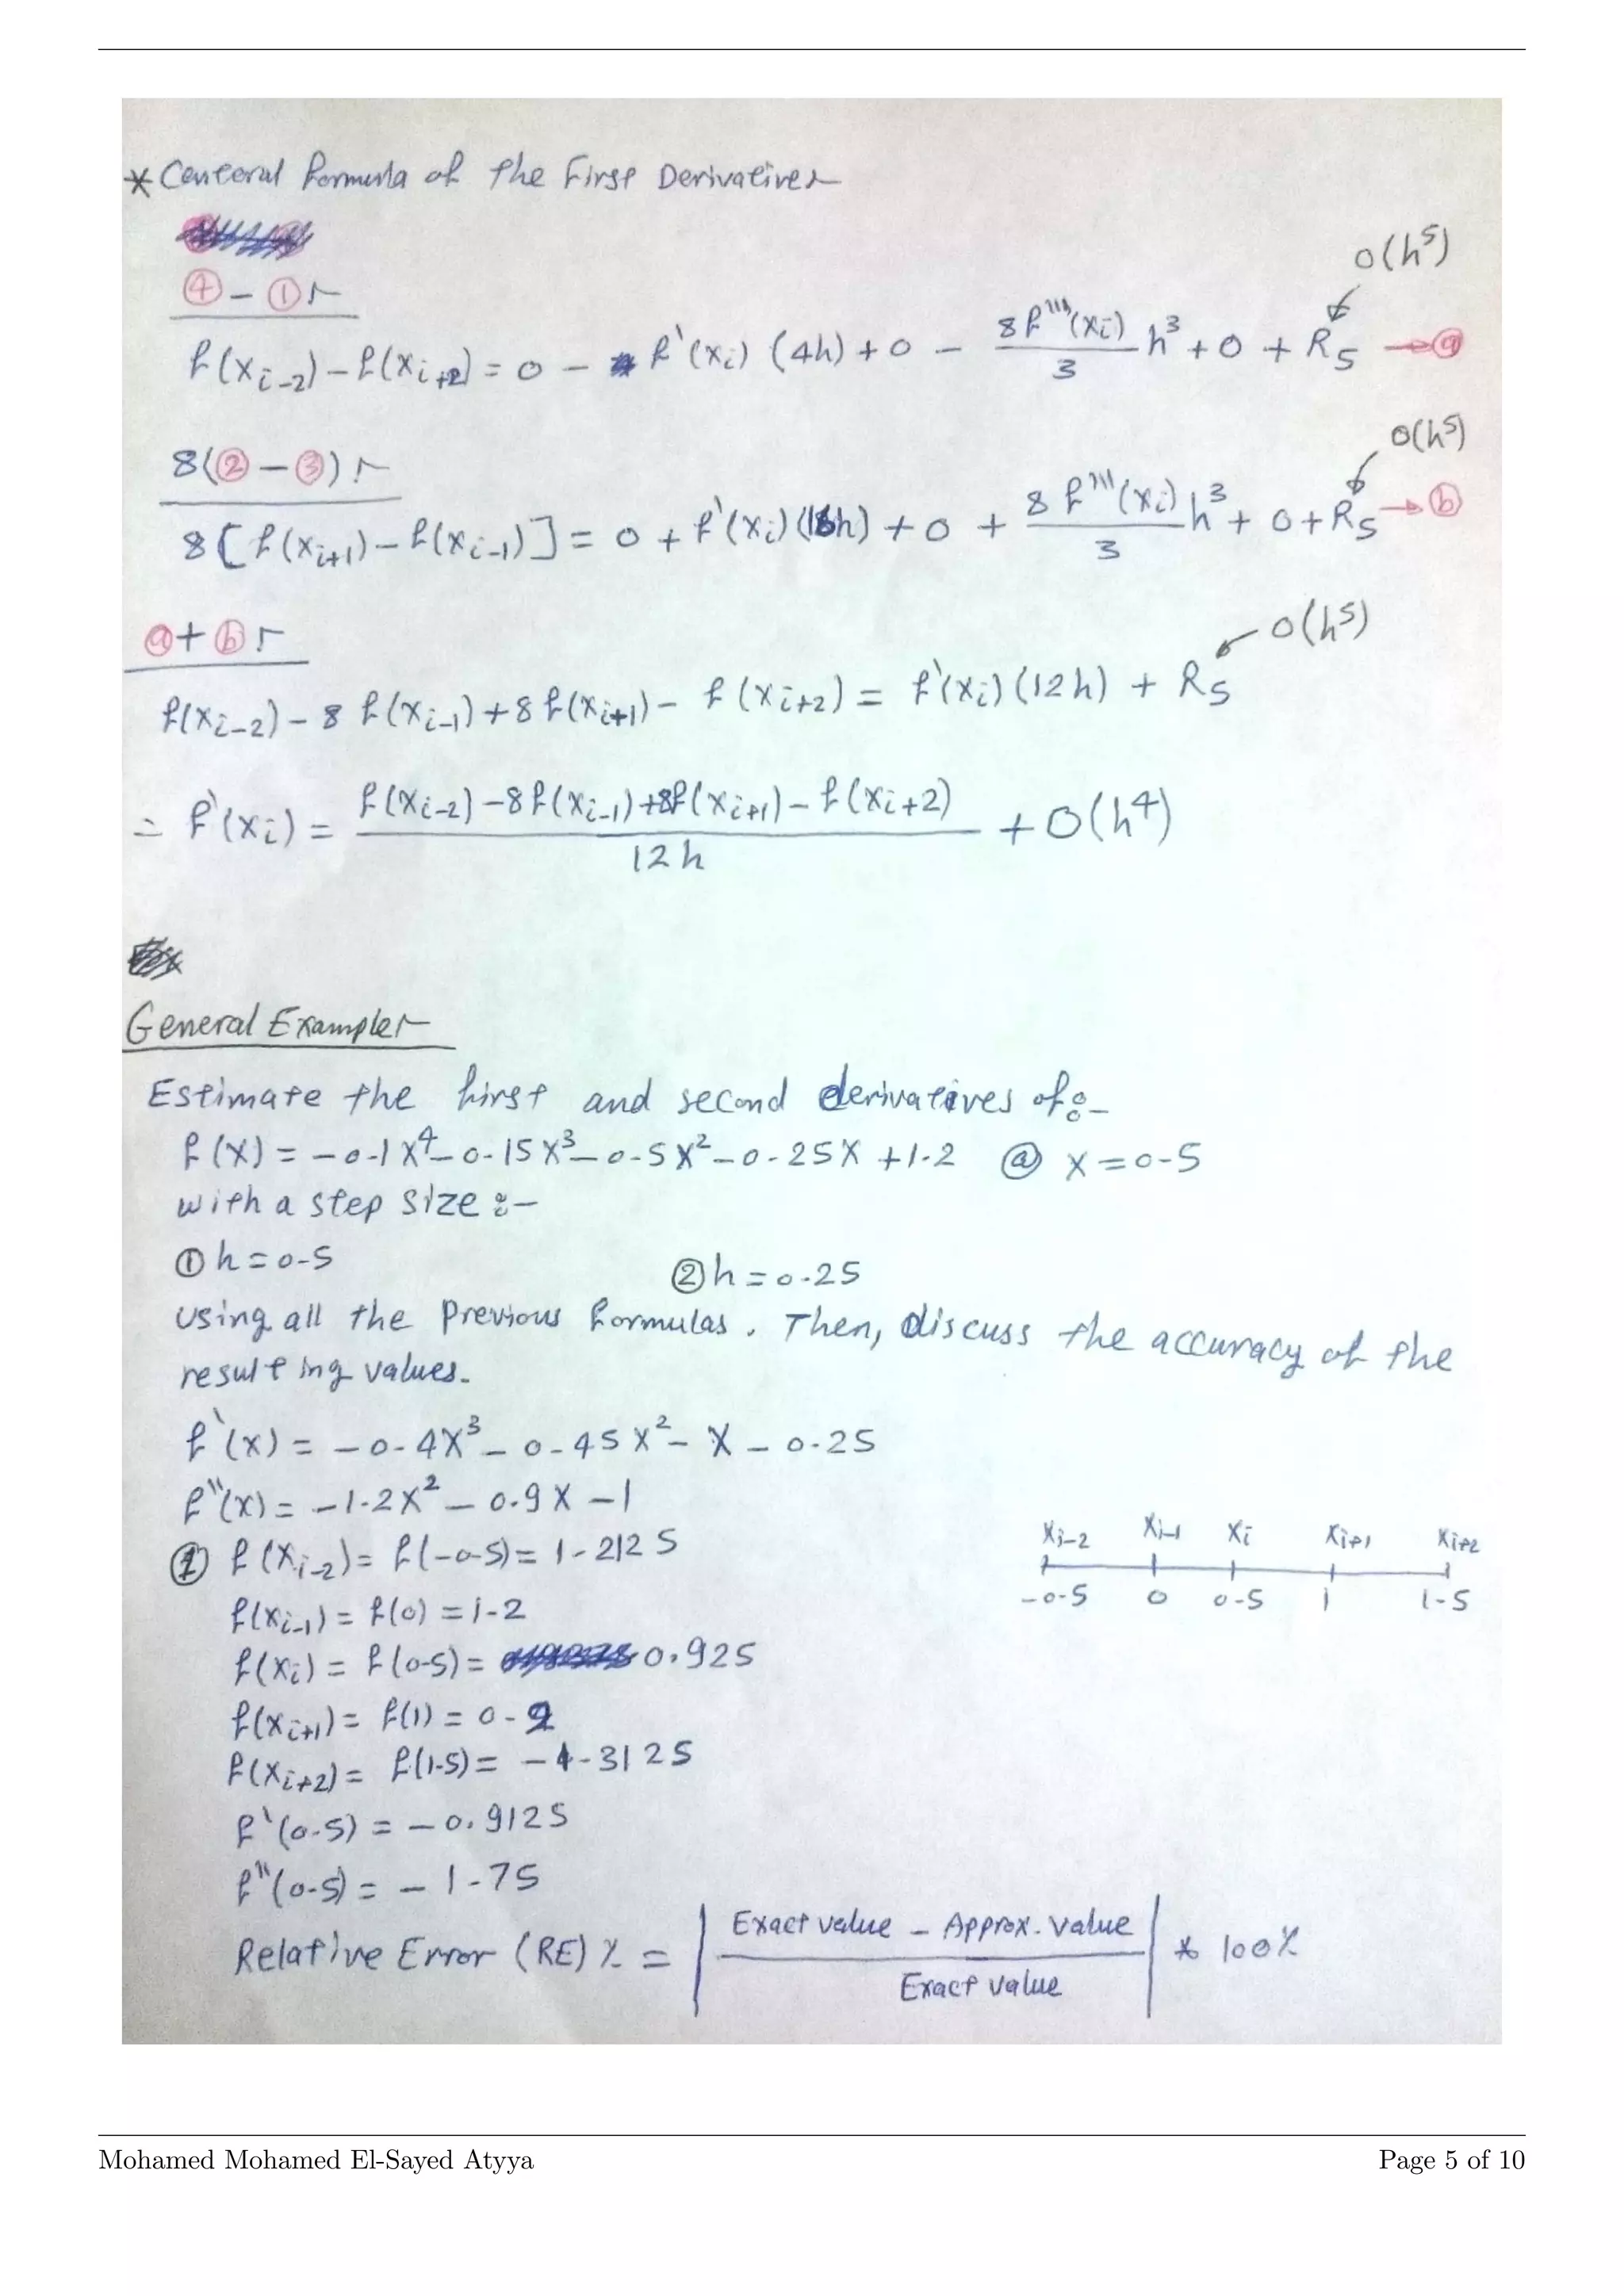 * Centeral formula of the First Derivative:-
④ - ①:-
f(xᵢ₋₂) - f(xᵢ₊₂) = 0 - f`(xᵢ) (4h) + 0 - 8f```(xᵢ)/3 h³ + 0 + R₅ → ⓐ
O(h⁵)
8(② - ③):-
8[f(xᵢ₊₁) - f(xᵢ₋₁)] = 0 + f`(xᵢ)(16h) + 0 + 8f```(xᵢ)/3 h³ + 0 + R₅ → ⓑ
O(h⁵)
ⓐ + ⓑ:-
f(xᵢ₋₂) - 8f(xᵢ₋₁) + 8f(xᵢ₊₁) - f(xᵢ₊₂) = f`(xᵢ)(12h) + R₅
O(h⁵)
∴ f`(xᵢ) = (f(xᵢ₋₂) - 8f(xᵢ₋₁) + 8f(xᵢ₊₁) - f(xᵢ₊₂))/12h + O(h⁴)
General Example:-
Estimate the first and second derivatives of:-
f(x) = -0.1x⁴ - 0.15x³ - 0.5x² - 0.25x + 1.2 @ x = 0.5
with a step size :-
① h = 0.5 ② h = 0.25
using all the Previous formulas. Then, discuss the accuracy of the
resulting values.
f`(x) = -0.4x³ - 0.45x² - x - 0.25
f``(x) = -1.2x² - 0.9x - 1
① f(xᵢ₋₂) = f(-0.5) = 1.2125
xᵢ₋₂ xᵢ₋₁ xᵢ xᵢ₊₁ xᵢ₊₂
-0.5 0 0.5 1 1.5
f(xᵢ₋₁) = f(0) = 1.2
f(xᵢ) = f(0.5) = 0.925
f(xᵢ₊₁) = f(1) = 0.2
f(xᵢ₊₂) = f(1.5) = -1.3125
f`(0.5) = -0.9125
f``(0.5) = -1.75
Relative Error (RE) % = | (Exact value - Approx. value)/Exact value | * 100%
Mohamed Mohamed El-Sayed Atyya Page 5 of 10